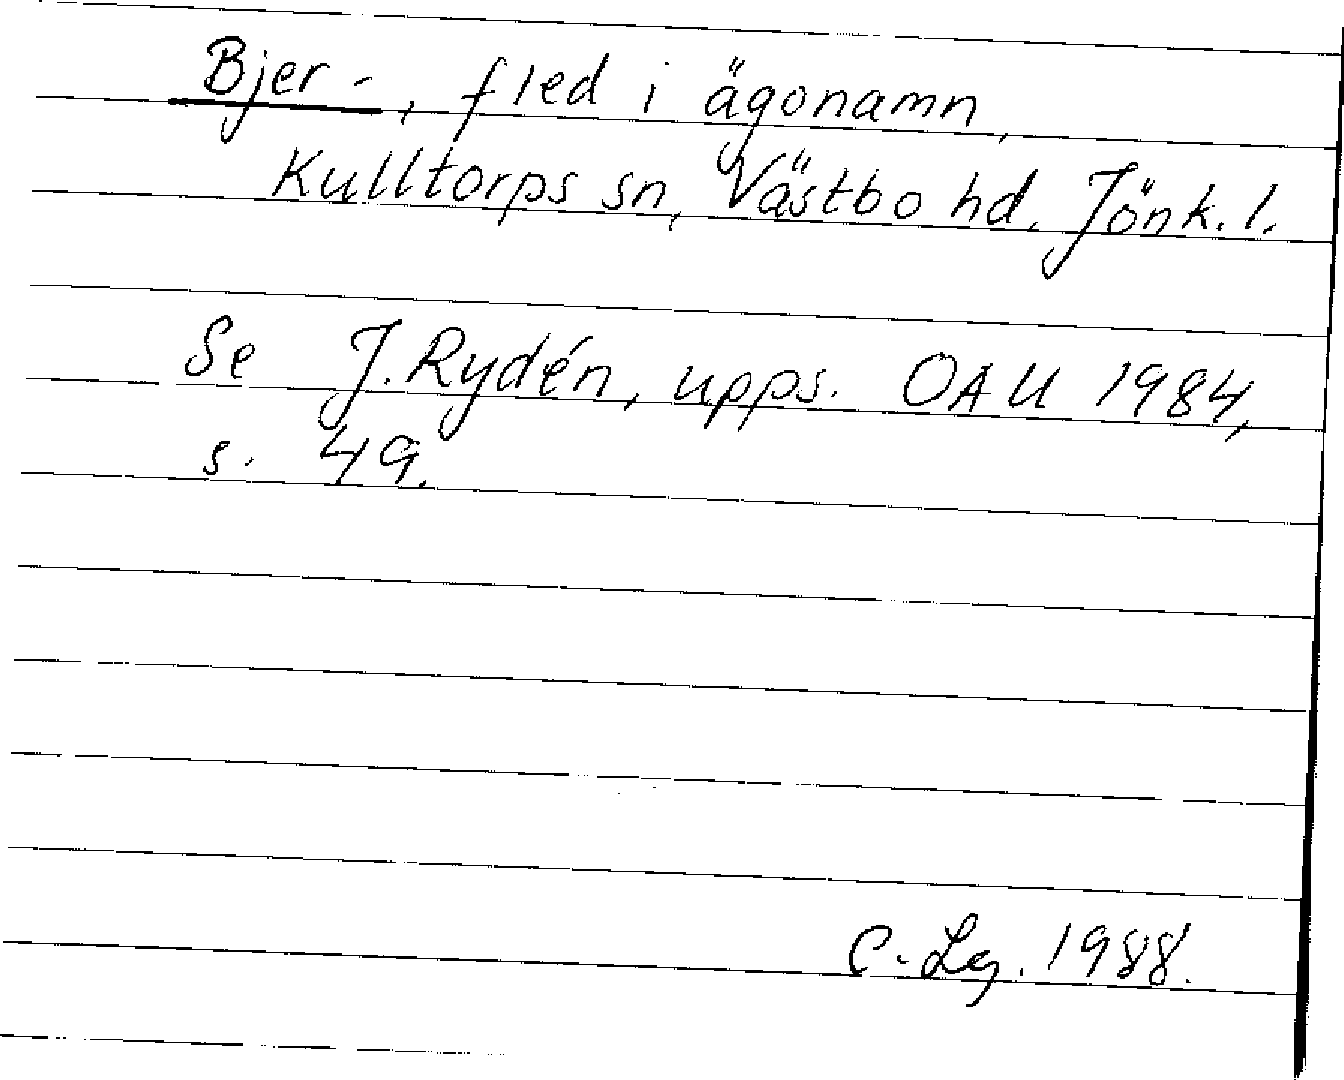 Bjer-, fled i ägonamn,
Kulltorps sn, Västbo hd. Jönk. l.
Se J. Rydén, upps. OAU 1984,
s. 49.
C. Lg. 1988.